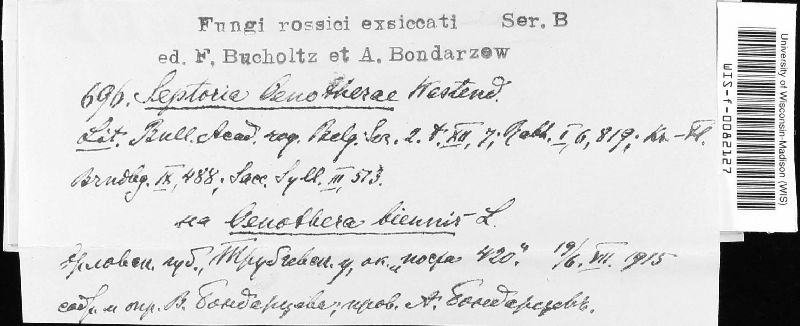 Fungi rossici exsiccati Ser. B
ed. F. Bucholtz et A. Bondarzew
696. Septoria Oenotherae Westend.
Lit. Bull. Acad. roy. Belg. Ser. 2. t. XII, 7; Rabh. I, 6, 819; Kr.-Fl.
Brndbg. IX, 488; Sacc. Syll. III, 513.
на Oenothera biennis L.
Орловск. губ., Трубчевск. у., ок. „ 420“. 19/6. VII. 1915
собр. и опр. В. Бондарцева; пров. А. Бондарцевъ.
University of Wisconsin Madison (WIS)
WIS-f-0082127